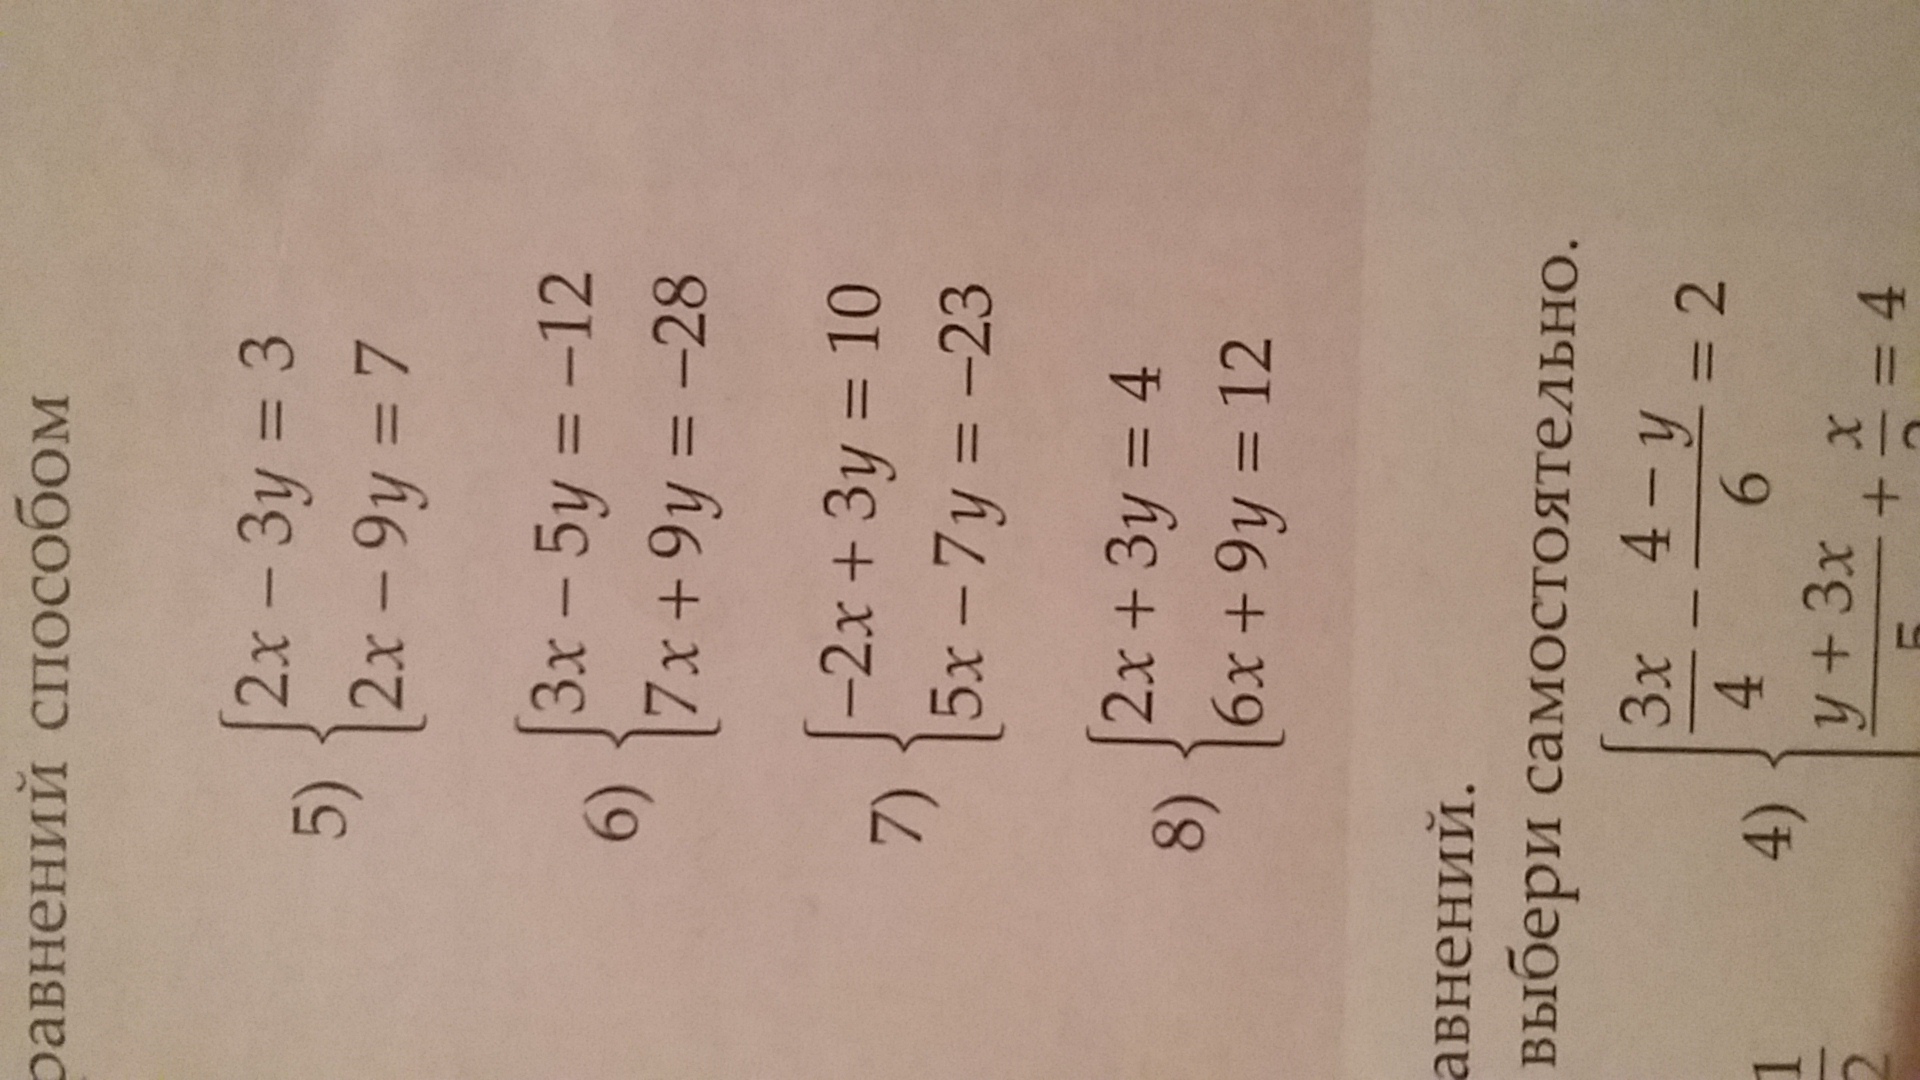 равнений способом
5) {2x − 3y = 3
2x − 9y = 7
6) {3x − 5y = −12
7x + 9y = −28
7) {−2x + 3y = 10
5x − 7y = −23
8) {2x + 3y = 4
6x + 9y = 12
авнений.
выбери самостоятельно.
1/2
4) {3x/4 − (4 − y)/6 = 2
(y + 3x)/5 + x/2 = 4